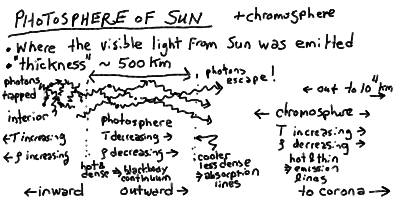 PHOTOSPHERE OF SUN + chromosphere
• Where the visible light from Sun was emitted
• "thickness" ~ 500 km
photons trapped
photons escape!
← out to 10⁴ km
interior
photosphere
← chromosphere →
← T increasing
T decreasing →
T increasing →
← ρ increasing
ρ decreasing →
ρ decreasing →
hot & dense → blackbody continuum
cooler less dense → absorption lines
hot & thin → emission lines
← inward
outward →
to corona →